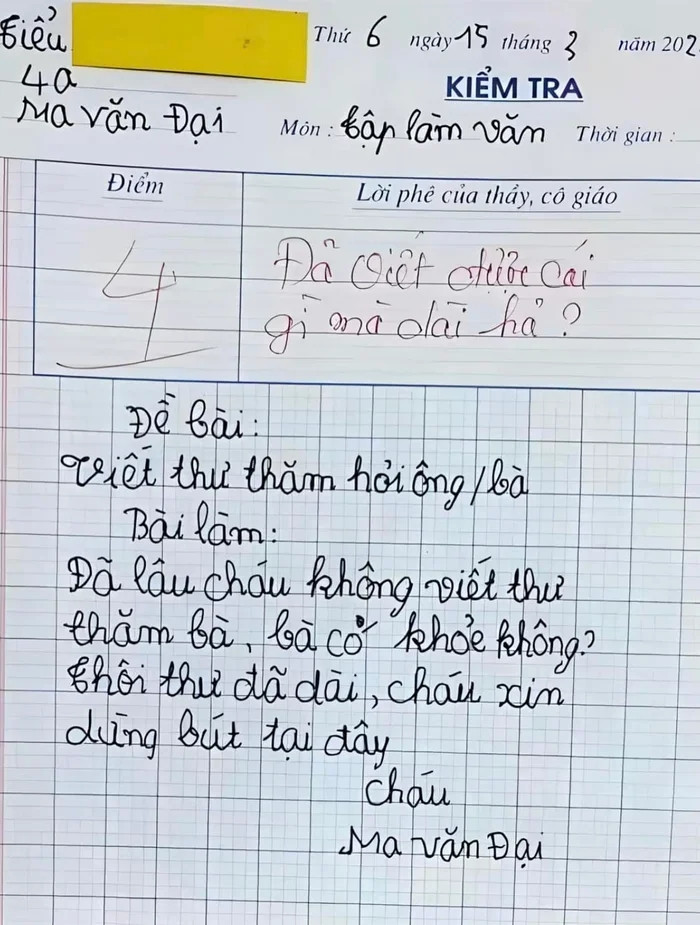 Tiểu
Thứ 6 ngày 15 tháng 3 năm 202
4a
KIỂM TRA
Ma Văn Đại
Môn : tập làm văn Thời gian :
Điểm
Lời phê của thầy, cô giáo
4
Đã viết được cái
gì mà dài hả ?
Đề bài:
Viết thư thăm hỏi ông/bà
Bài làm:
Đã lâu cháu không viết thư
thăm bà, bà có khỏe không?
Thôi thư đã dài, cháu xin
dừng bút tại đây
Cháu
Ma Văn Đại